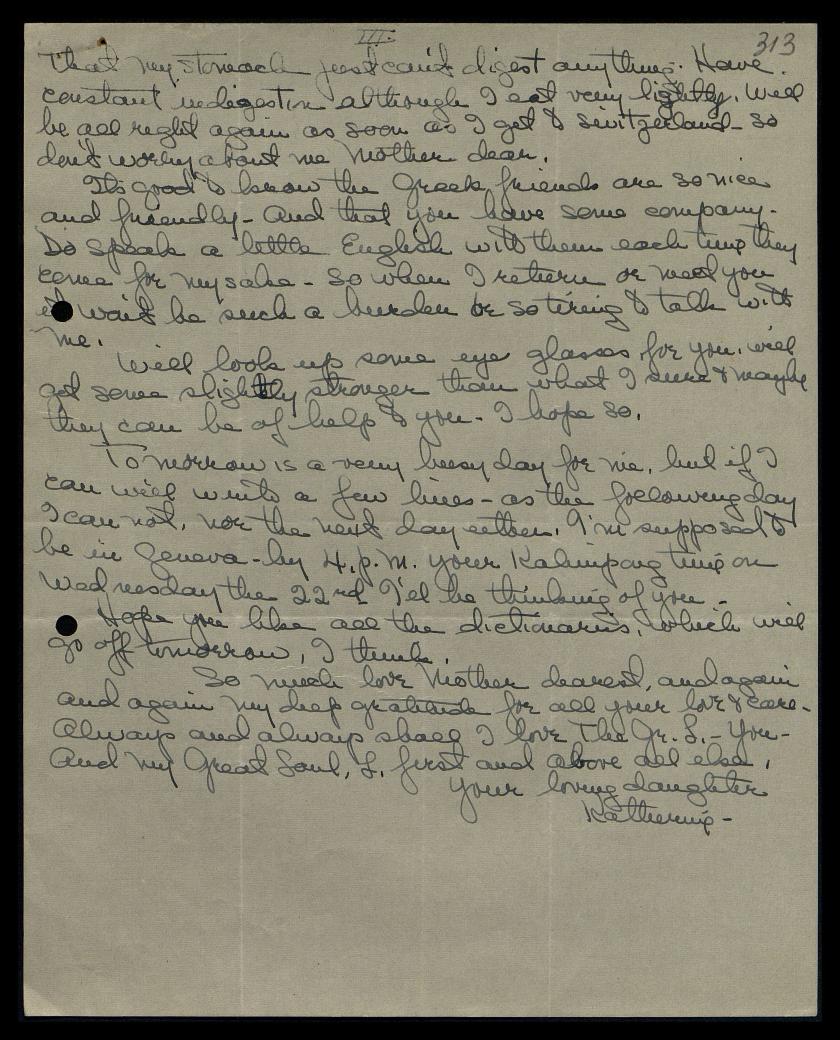 III.
313
that my stomach just can't digest anything. Have
constant indigestion although I eat very lightly. Will
be all right again as soon as I get to Switzerland - so
don't worry about me Mother dear.
Its good to know the Greek friends are so nice
and friendly - And that you have some company.
Do speak a little English with them each time they
come for my sake - So when I return or meet you
it won't be such a burden or so tiring to talk with
me.
Will look up some eye glasses for you. will
get some slightly stronger than what I & maybe
they can be of help to you - I hope so.
Tomorrow is a very busy day for me, but if I
can will write a few lines - as the following day
I can not, nor the next day either. I'm supposed to
be in Geneva - by 4. p.m. your Kalimpong time on
Wednesday the 22nd I'll be thinking of you -
Hope you like all the dictionaries, which will
go off tomorrow, I think.
So much love Mother dearest, and again
and again my deep gratitude for all your love & care -
Always and always shall I love The Gr. L. - You -
And My Great Soul, L. first and above all else.
Your loving daughter
Katherine -